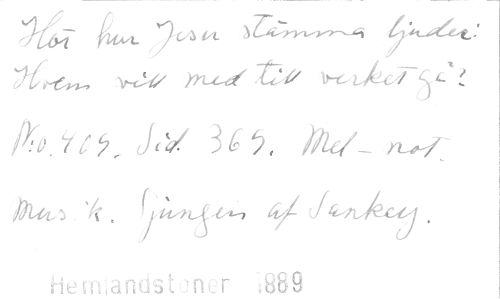 Hör hur Jesu stämma ljuder:
Hvem vill med till verket gå?
No. 409. Sid. 369. Mel-not.
Musik. Sjungen af Sankey.
Hemlandstoner 1889